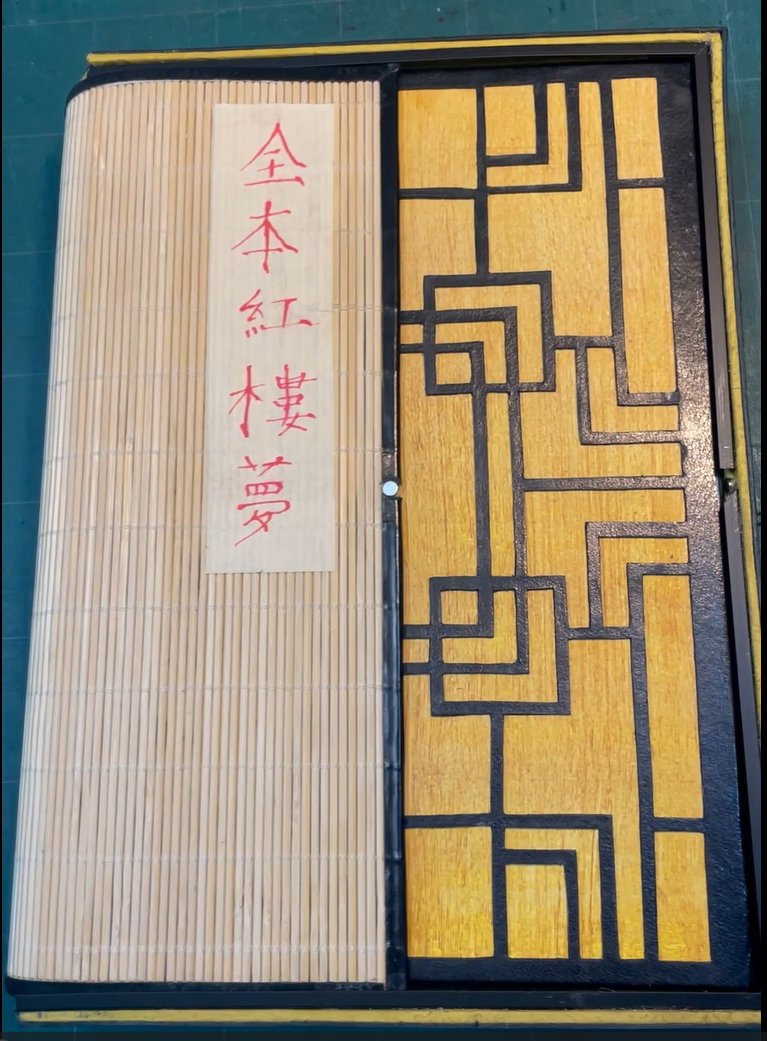 全本紅樓夢